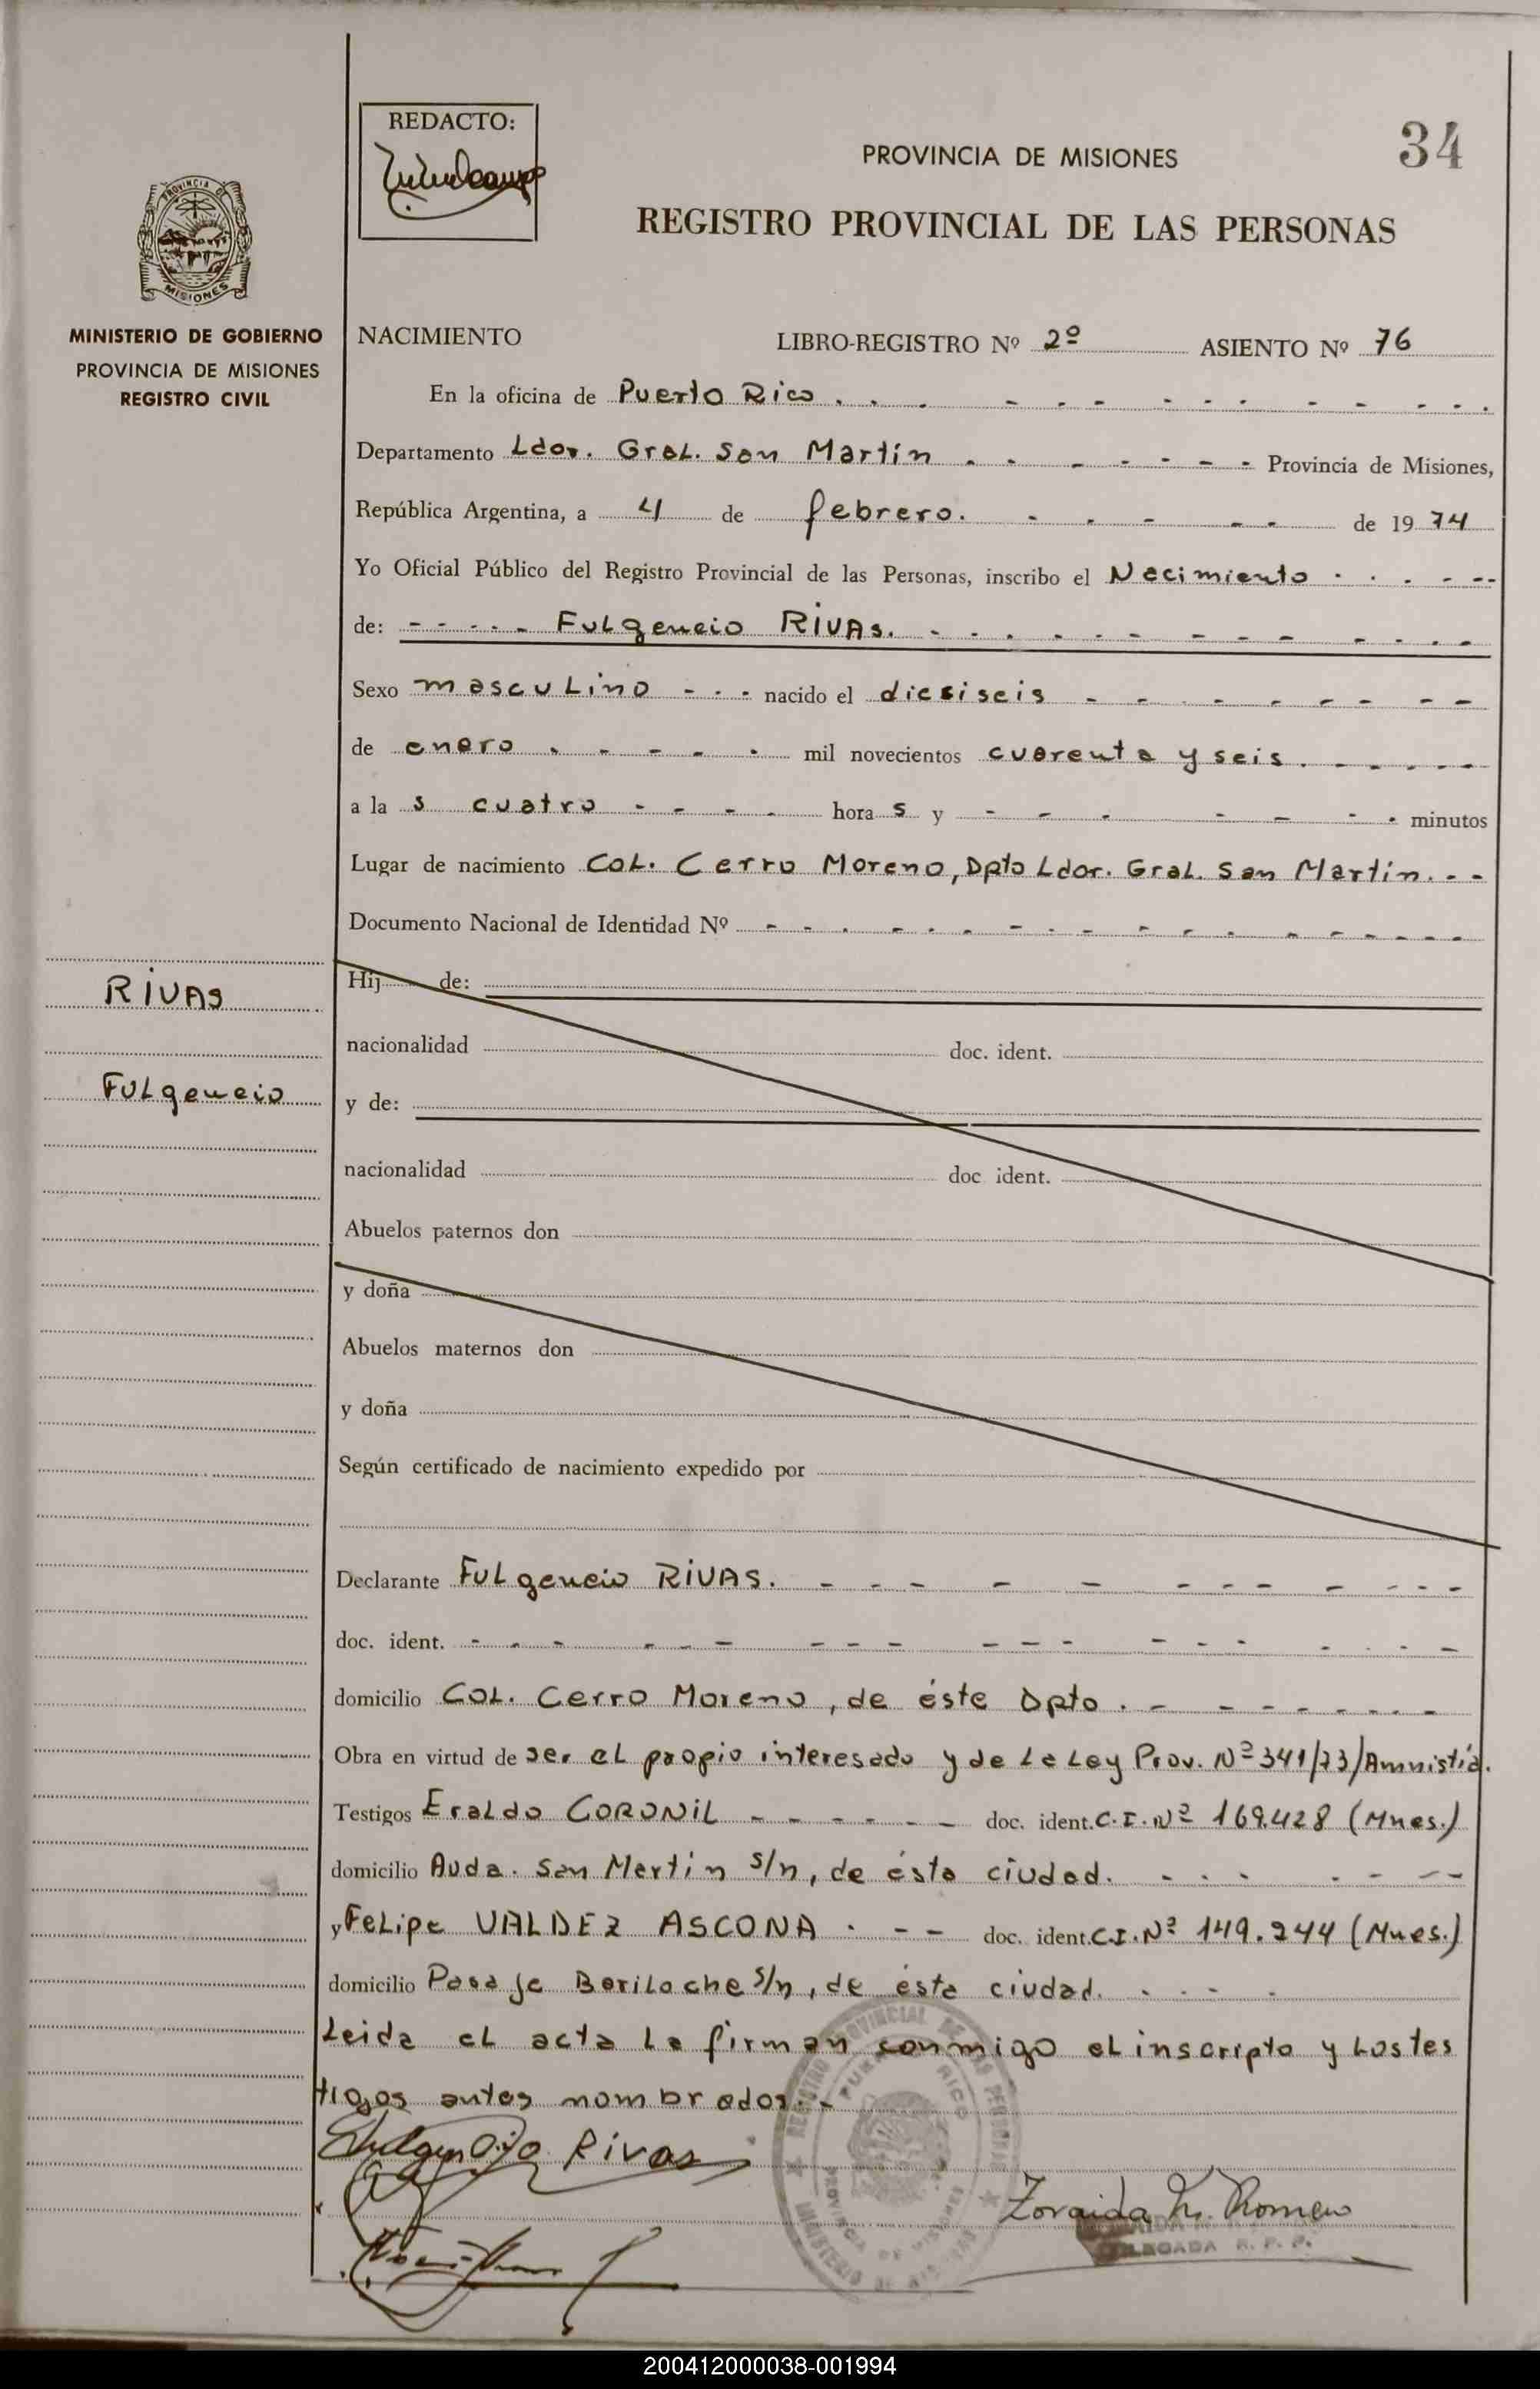 REDACTO:
34
PROVINCIA DE MISIONES
REGISTRO PROVINCIAL DE LAS PERSONAS
PROVINCIA DE
MISIONES
MINISTERIO DE GOBIERNO
PROVINCIA DE MISIONES
REGISTRO CIVIL
NACIMIENTO LIBRO-REGISTRO Nº 2º ASIENTO Nº 76
En la oficina de Puerto Rico . . . - - - - - - - - - - . .
Departamento Ldor. Gral. San Martín . - - - - - - - Provincia de Misiones,
República Argentina, a 4 de febrero. - - - - - de 1974
Yo Oficial Público del Registro Provincial de las Personas, inscribo el Nacimiento - - - - - -
de: - - - - - Fulgencio RIVAS. - - - - - - - - - - - - -
Sexo masculino - - - nacido el dieciseis - - - - - - - - -
de enero - - - - - mil novecientos cuarenta y seis. - - - - - -
a la s cuatro - - - - - hora s y - - - - - - - - minutos
Lugar de nacimiento Col. Cerro Moreno, Dpto Ldor. Gral. San Martín. - -
Documento Nacional de Identidad Nº - - - - - - - - - - - - - - - - -
RIVAS
Fulgencio
Hij de:
nacionalidad doc. ident.
y de:
nacionalidad doc ident.
Abuelos paternos don
y doña
Abuelos maternos don
y doña
Según certificado de nacimiento expedido por
Declarante Fulgencio RIVAS. - - - - - - - - - - - - -
doc. ident. - - - - - - - - - - - - - - - - - - -
domicilio Col. Cerro Moreno, de éste Dpto. - - - - - - - -
Obra en virtud de ser el propio interesado y de la Ley Prov. Nº 341/73/Amnistía.
Testigos Eraldo CORONIL - - - - - - doc. ident. C.I. Nº 169.428 (Mnes.)
domicilio Avda. San Martín s/n, de ésta ciudad. - - - - - - -
y Felipe VALDEZ ASCONA - - - doc. ident. C.I. Nº 149.244 (Mnes.)
domicilio Pasaje Bariloche s/n, de ésta ciudad. - - - -
Leida el acta la firman conmigo el inscripto y los tes
tigos antes nombrados.-
Rivas
REGISTRO PROVINCIAL DE LAS PERSONAS
PUERTO RICO
PROVINCIA DE MISIONES
MINISTERIO DE
Zoraida M. Romero
DELEGADA R. P. P.
200412000038-001994